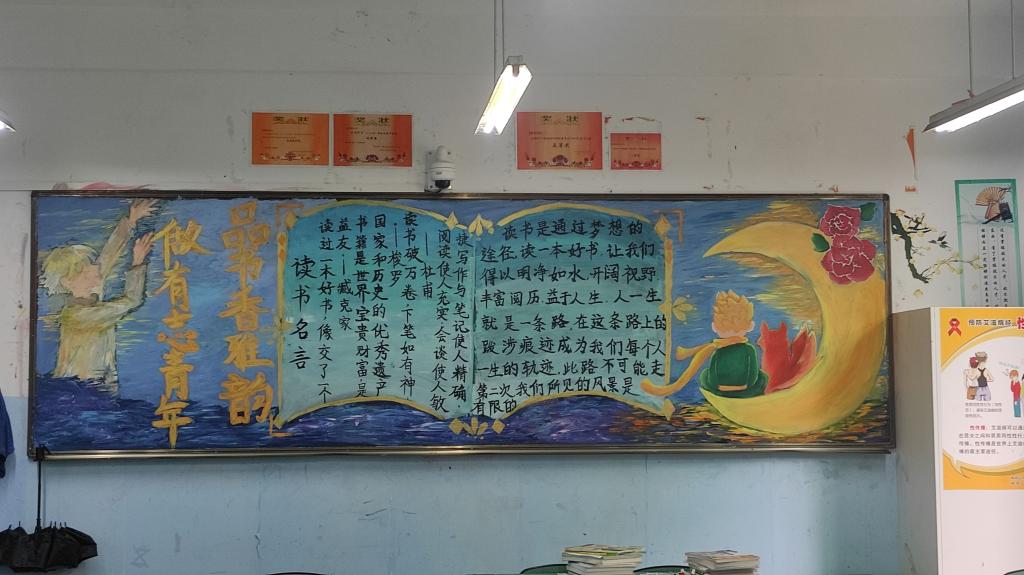 奖状
奖状
奖状
品书香雅韵
做有志青年
读书名言
读过一本好书,像交了一个
益友——臧克家
书籍是世界宝贵财富,是
国家和历史的优秀遗产
——梭罗
读书破万卷,下笔如有神
——杜甫
阅读使人充实,会谈使人敏
捷,写作与笔记使人精确.
读书是通过梦想的
途径.读一本好书,让我们
得以明净如水,开阔视野
丰富阅历,益于人生.人一生
就是一条路,在这条路上的
跋涉痕迹成为我们每个人
一生的轨迹,此路不可能走
第二次,我们所见的风景是
有限的
预防艾滋病经
性传播:艾滋病可以通
传播。性传播是世界上艾滋
播的最主要途径。